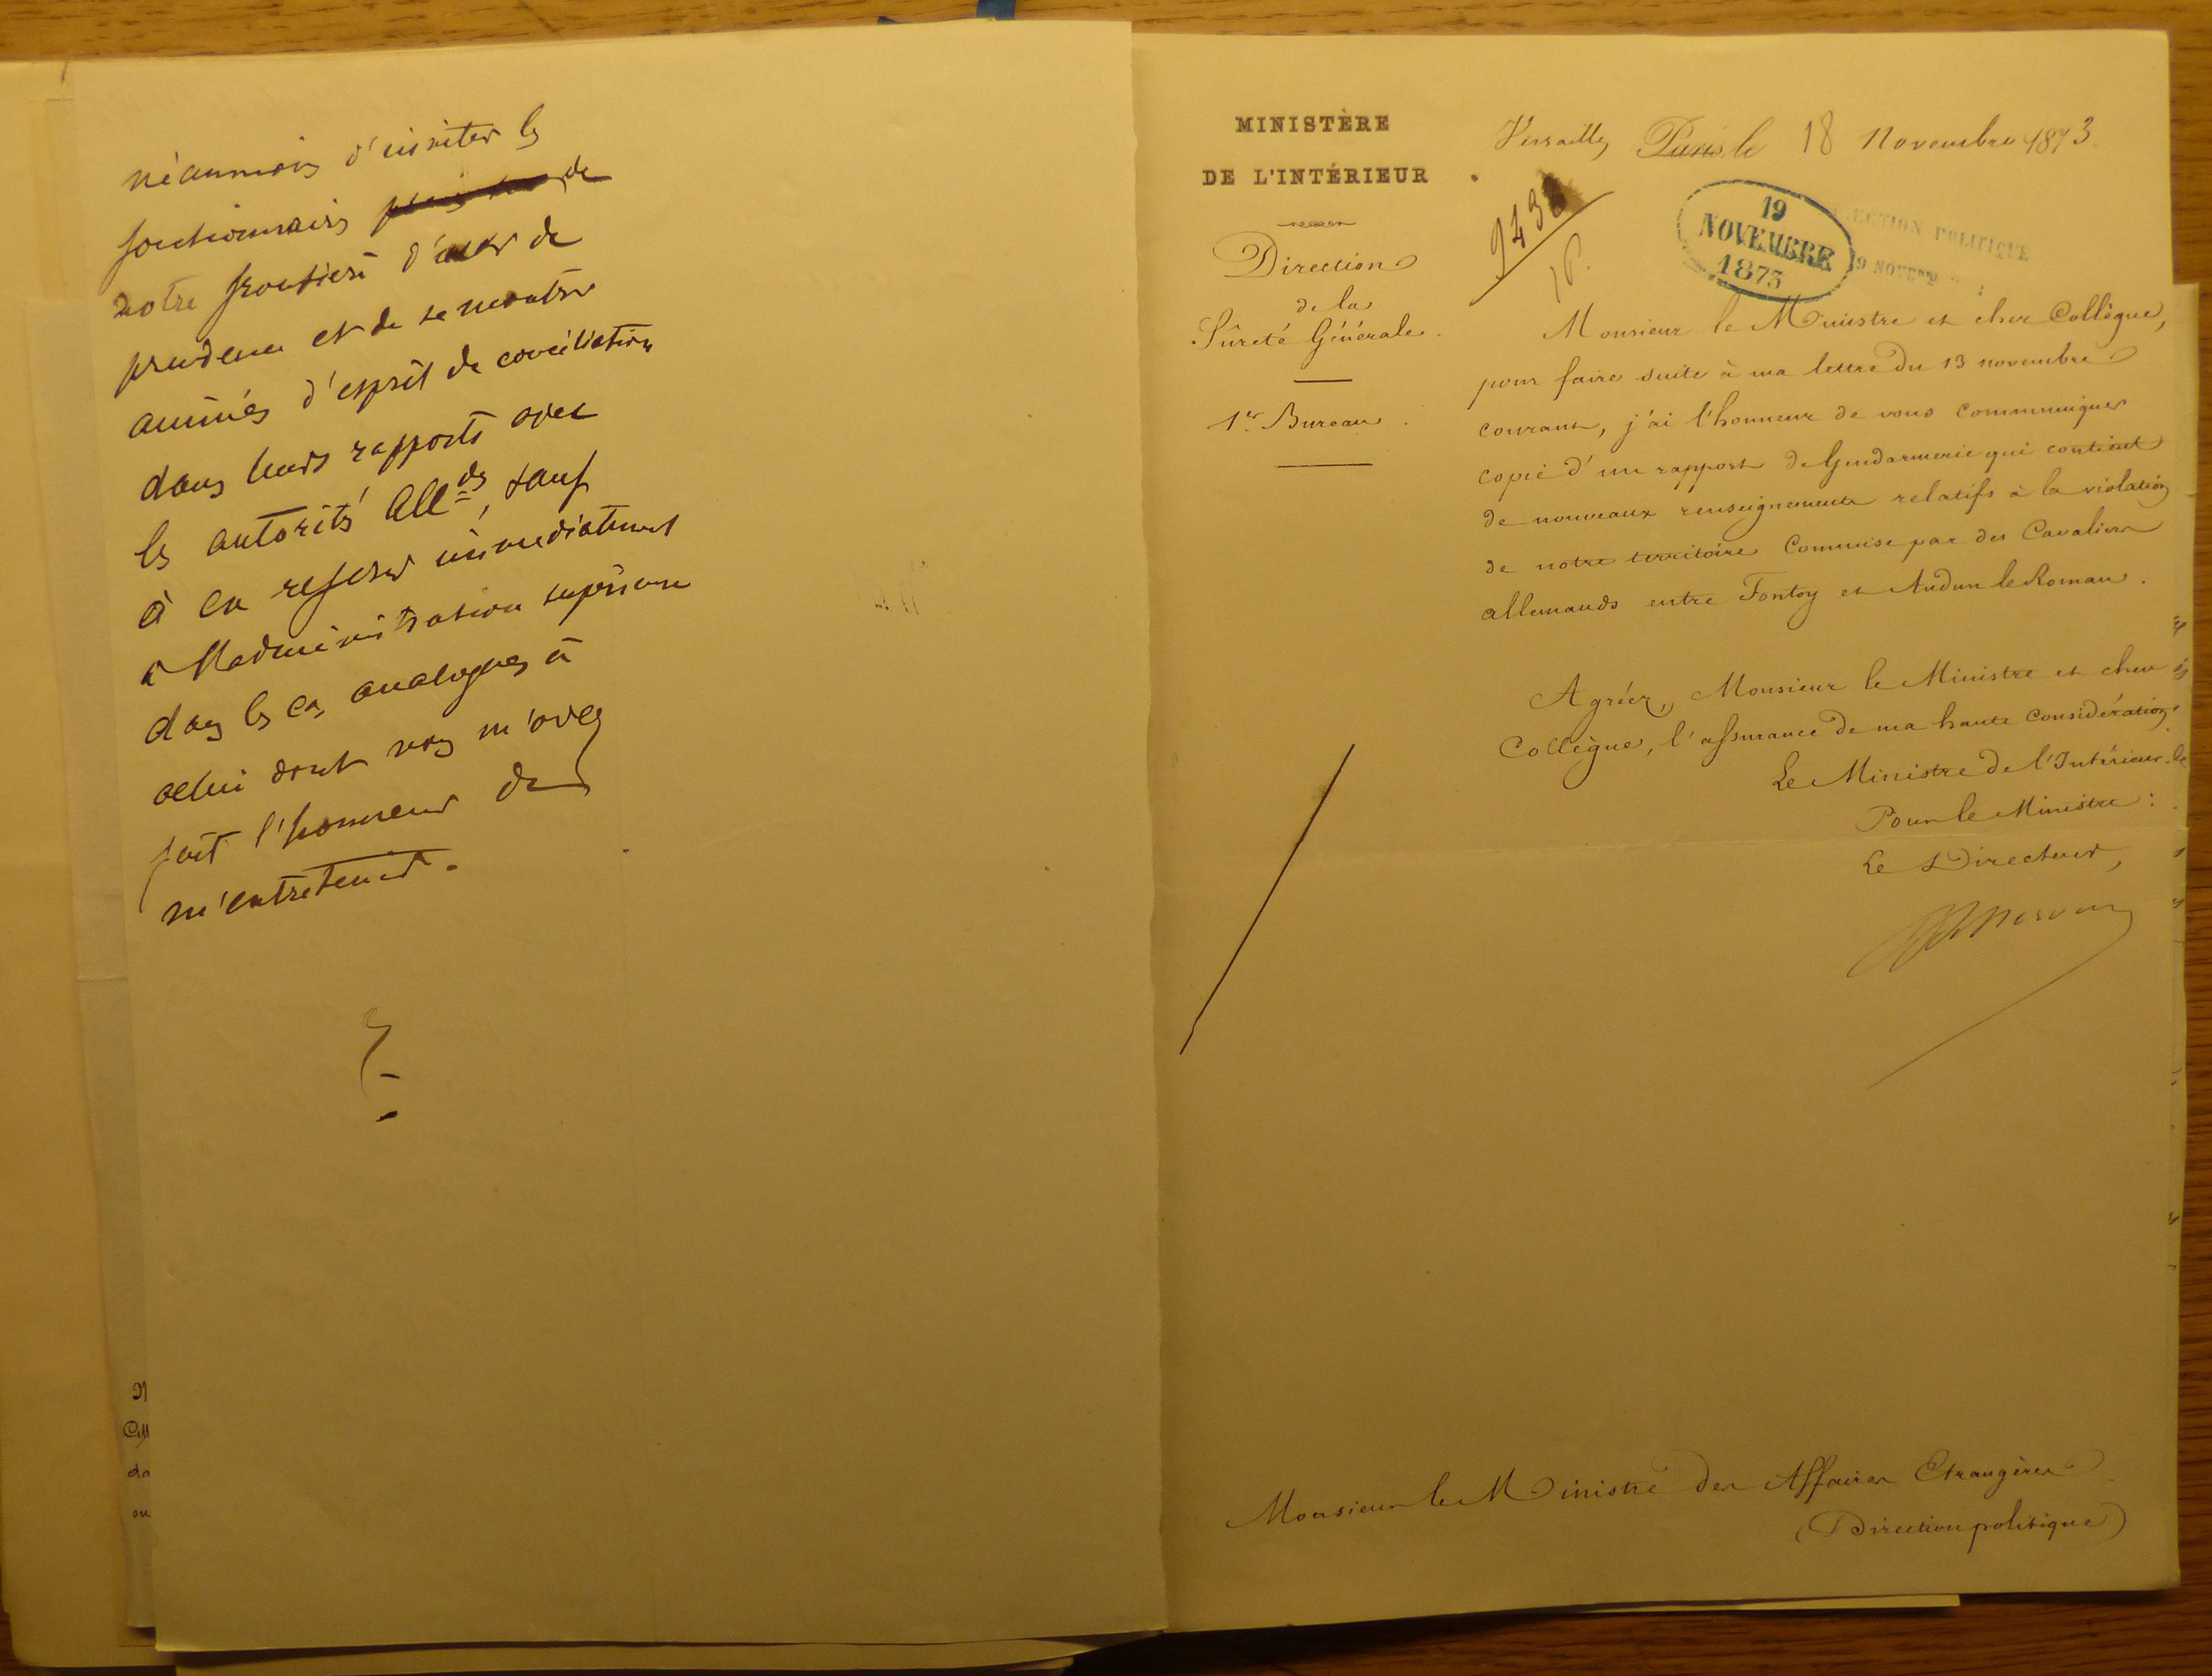 néanmoins d'inviter les
fonctionnaires de
notre frontière d'user de
prudence et de se montrer
animés d'esprit de conciliation
dans leurs rapports avec
les autorités All=des, sauf
à en referer immediatement
à l'administration supérieure
dans les cas analogues à
celui dont vous m'avez
fait l'honneur de
m'entretenir.
MINISTÈRE
DE L'INTÉRIEUR
Direction
de la
Sûreté Générale.
1er Bureau.
Versailles Paris, le 18 Novembre 1873
19
NOVEMBRE
1873
DIRECTION POLITIQUE
19 NOVEMB
Monsieur le Ministre et cher Collègue,
pour faire suite à ma lettre du 13 novembre
courant, j'ai l'honneur de vous communiquer
copie d'un rapport de Gendarmerie qui contient
de nouveaux renseignements relatifs à la violation
de notre territoire commise par des Cavaliers
allemands entre Fontoy et Audun le Roman.
Agréez, Monsieur le Ministre et cher
Collègue, l'assurance de ma haute considération.
Le Ministre de l'Intérieur.
Pour le Ministre :
Le Directeur,
Monsieur le Ministre des Affaires Etrangères
(Direction politique)